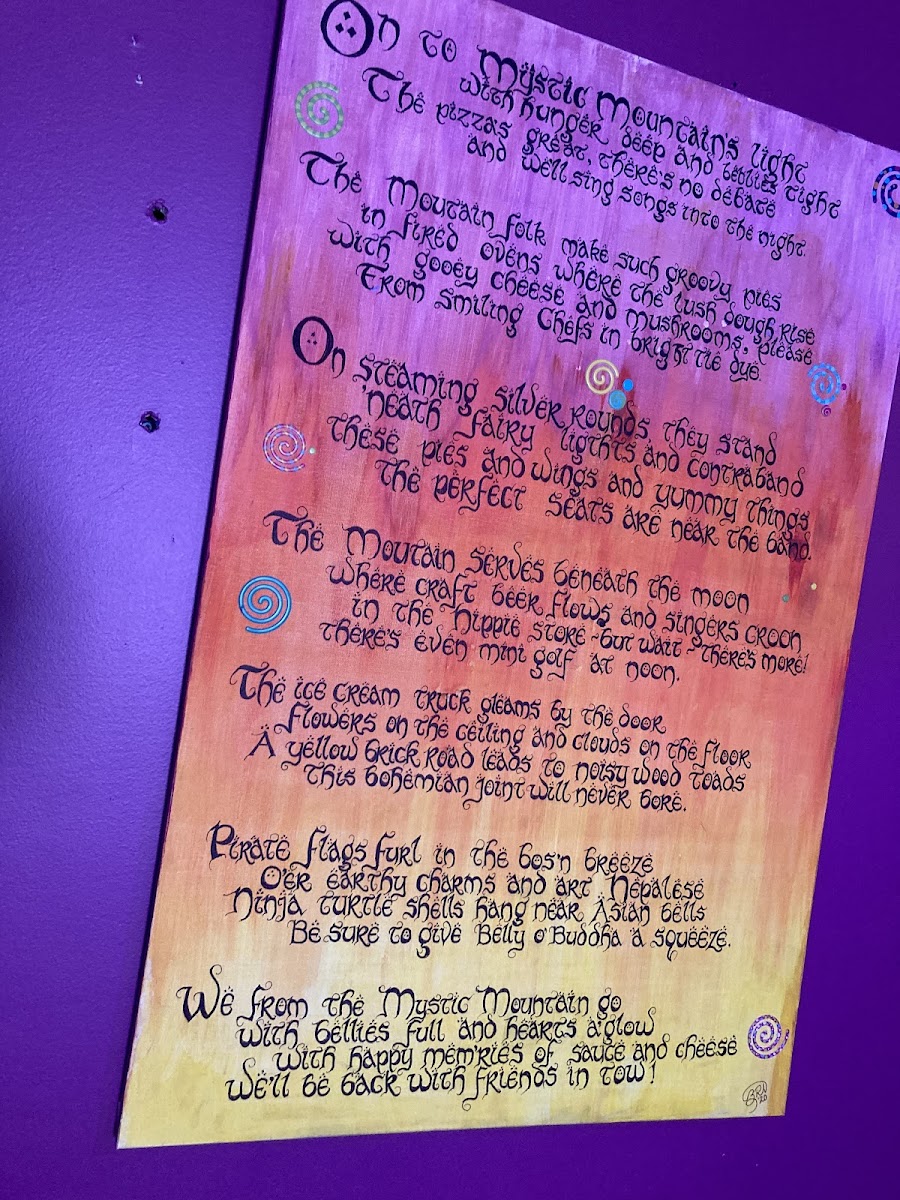 On to Mystic Mountain's light
with hunger deep and bellies tight
The pizza's great, there's no debate
and we'll sing songs into the night.
The Mountain folk make such groovy pies
in fired ovens where the lush dough rise
with gooey cheese and mushrooms, please
From smiling Chefs in bright tie dye.
On steaming silver rounds they stand
'neath fairy ligthts and contraband
these pies and wings and yummy things
the perfect seats are near the band.
The Moutain serves beneath the moon
where craft beer flows and singers croon
in the hippie store ~ but wait ~ there's more!
there's even mini golf at noon.
The ice cream truck gleams by the door
Flowers on the ceiling and clouds on the floor
A yellow brick road leads to noisy wood toads
this bohemian joint will never bore.
Pirate flags furl in the bos'n breeze
O'er earthy charms and art Nepalese
Ninja turtle shells hang near Asian bells
Be sure to give Belly o'Buddha a squeeze.
We from the Mystic Mountain go
with bellies full and hearts a'glow
with happy mem'ries of sauce and cheese
we'll be back with friends in tow!